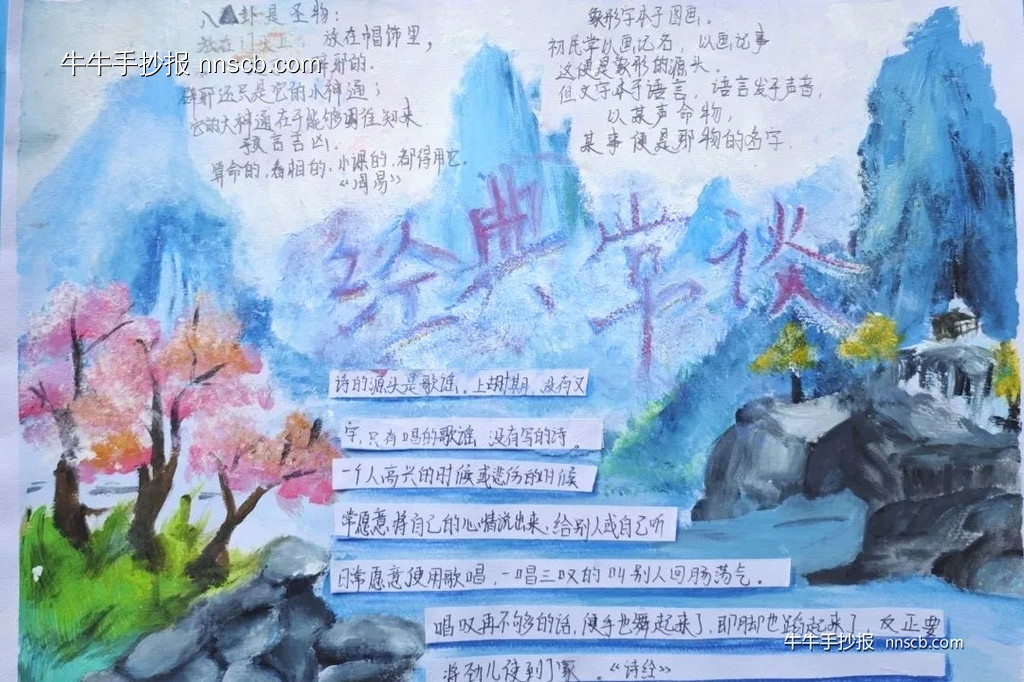 八卦是圣物：
放在门头上； 放在帽饰里，
辟邪的.
辟邪还只是它的小神通；
它的大神通在于能够因往知来
预言吉凶.
算命的，看相的，小课的，都得用它。
“周易”
象形字本于图画。
初民常以画记名，以画记事
这便是象形的源头.
但文字本于语言，语言发于声音，
以某声命物，
某声便是那物的名字.
牛牛手抄报 nnscb.com
经典常谈
诗的源头是歌谣。上古时期，没有文
字，只有唱的歌谣，没有写的诗。
一个人高兴的时候或悲伤的时候
常愿意将自己的心情说出来，给别人或自己听
日常愿意使用歌唱，一唱三叹的叫别人回肠荡气。
唱叹再不够的话，便手也舞起来了，即脚也蹈起来了，反正要
将劲儿使到了家。“诗经”
牛牛手抄报 nnscb.com